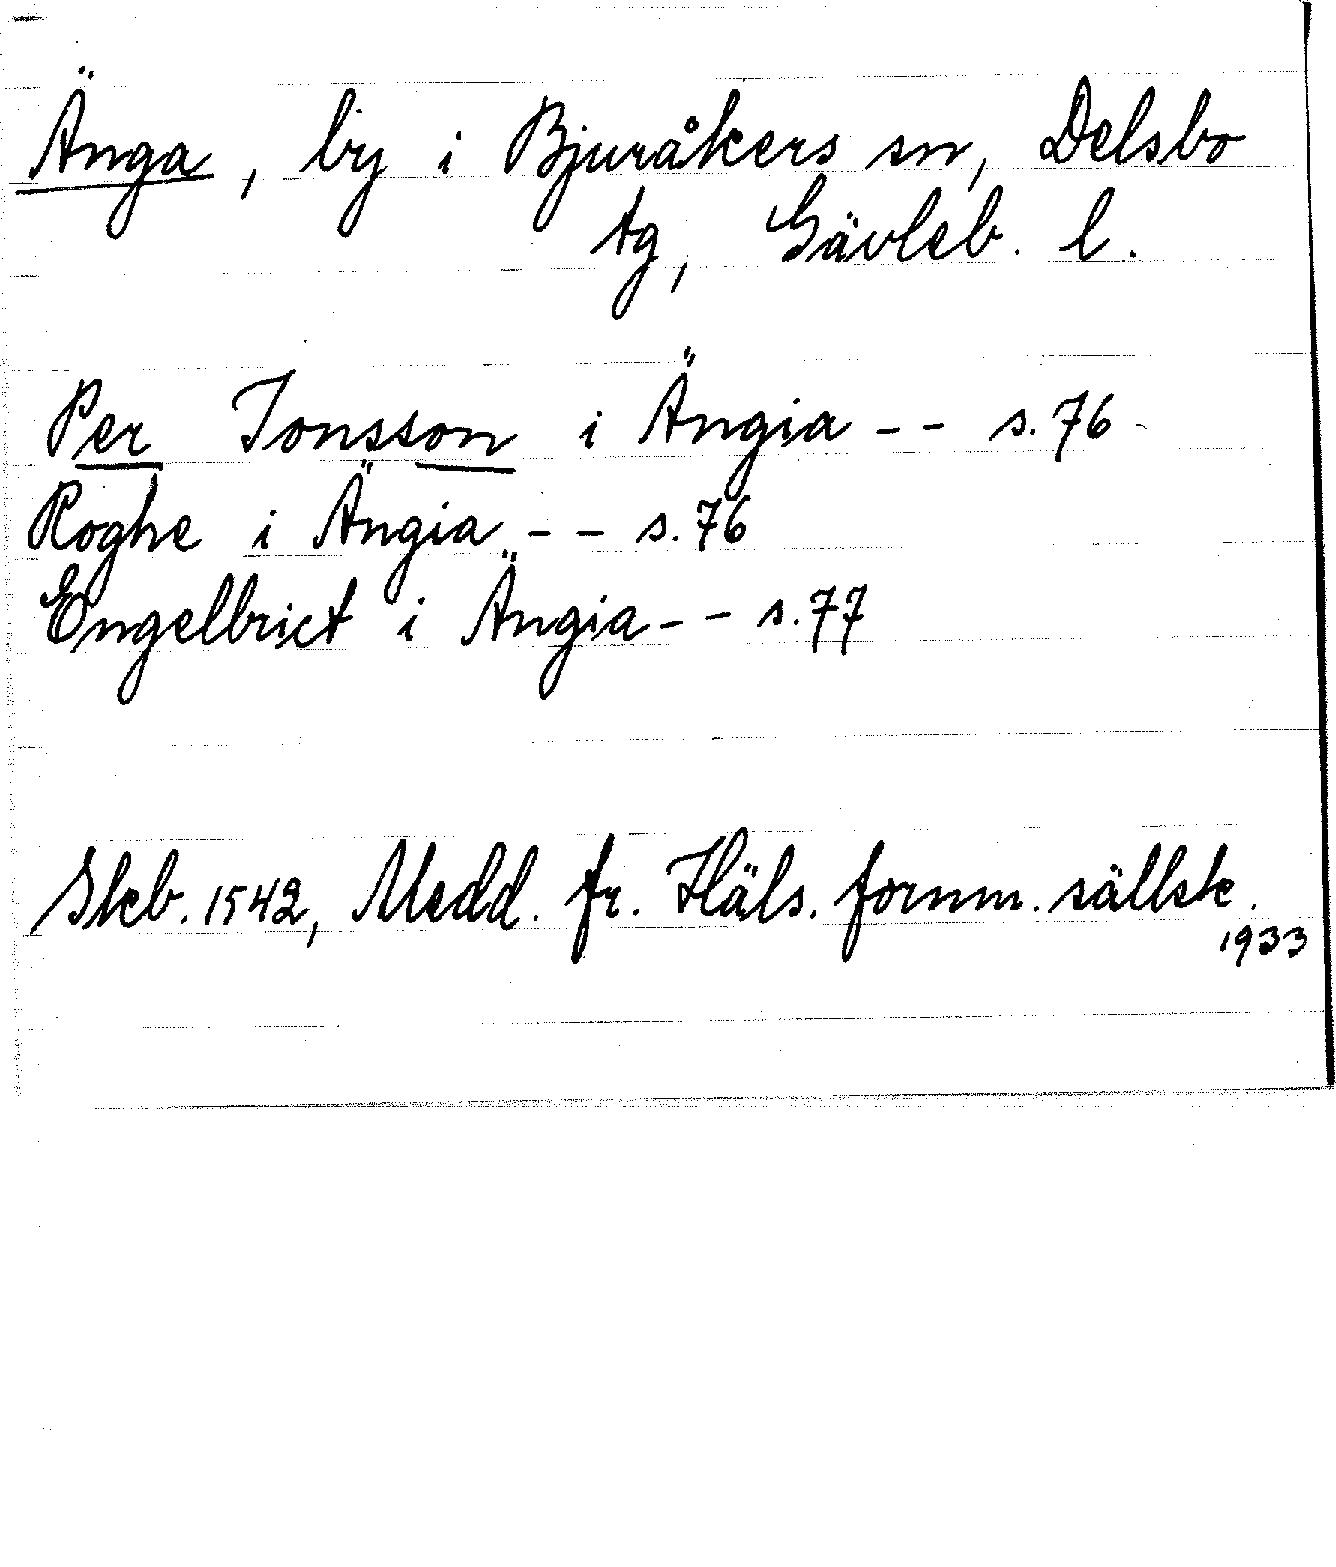 Änga, by i Bjuråkers sn, Delsbo
tg, Gävleb. l.
Per Jonsson i Ängia -- s. 76
Roghe i Ängia -- s. 76
Engelbrict i Ängia -- s. 77
Skb. 1542, Medd. fr. Häls. fornm. sällsk.
1933